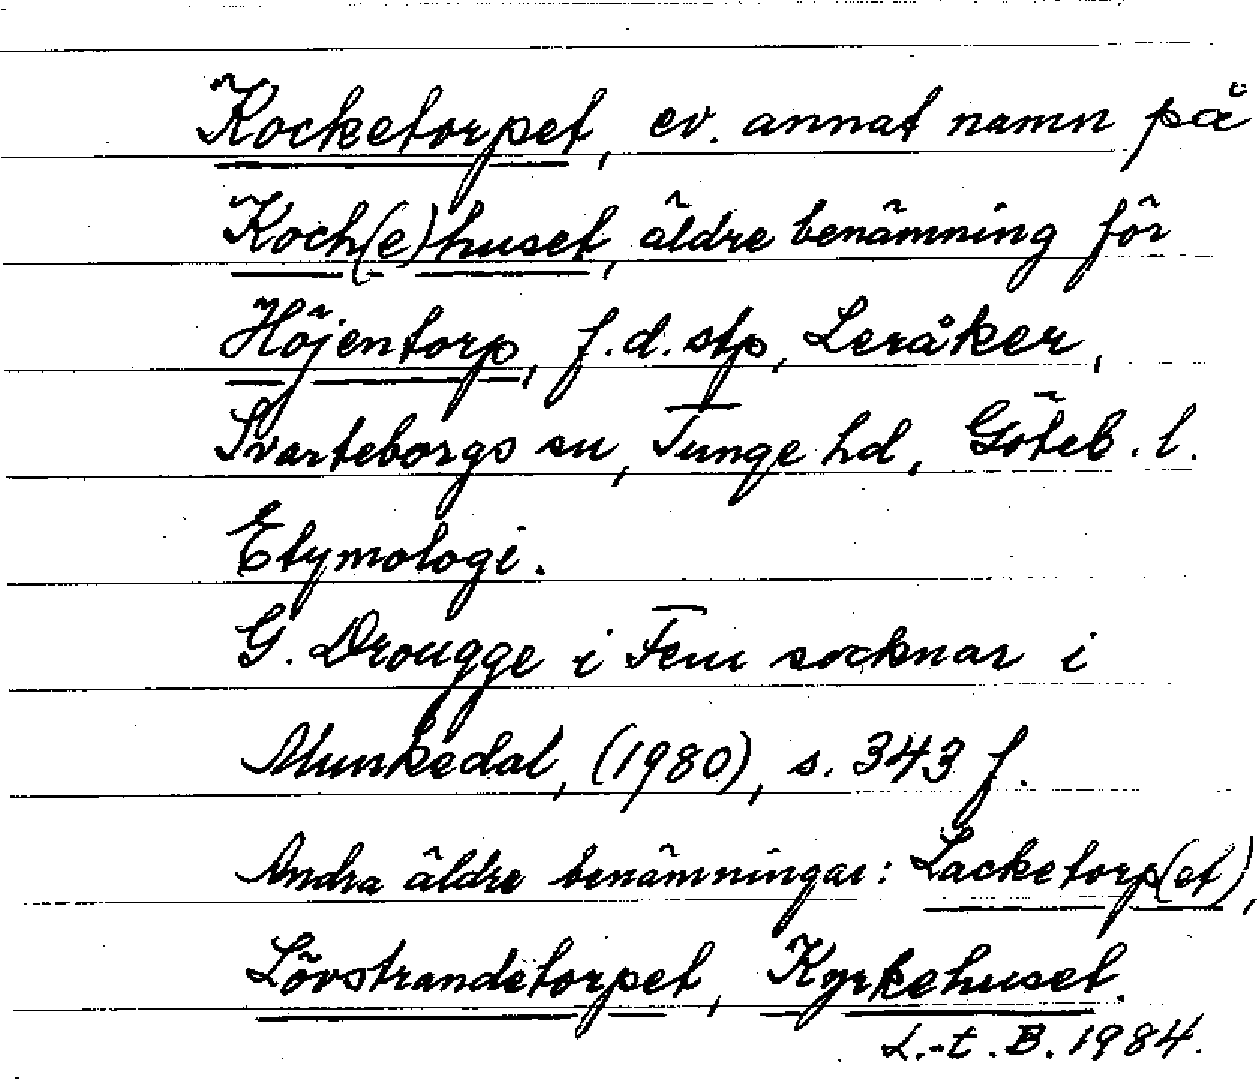 Kocketorpet, ev. annat namn på
Koch(e)huset, äldre benämning för
Höjentorp, f.d. stp, Leråker,
Svarteborgs sn, Tunge hd, Göteb. l.
Etymologi.
G. Drougge i Fem socknar i
Munkedal, (1980), s. 343 f.
Andra äldre benämningar: Lacketorp(et),
Lövstrandetorpet, Kyrkehuset.
L.-t. B. 1984.